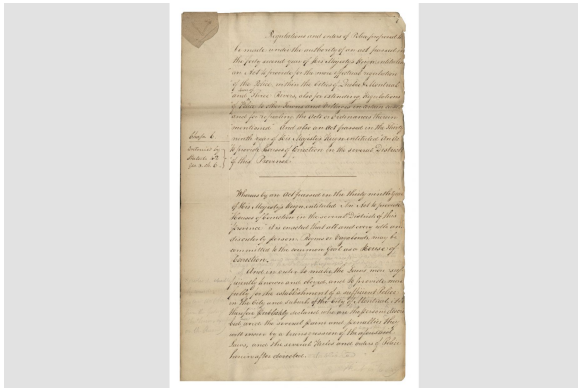 Regulations and orders of Police proposed to
be made under the authority of an act passed in
the forty second year of His Majesty's Reign entitled
an Act to provide for the more effectual regulation
of the Police within the Cities of Quebec & Montreal
and Three Rivers, also for extending Regulations
of Police to other Towns and Villages in certain cases
and for repealing the Acts or Ordinances therein
mentioned And also an Act passed in the thirty
ninth year of His Majesty's Reign entitled An Act
to provide Houses of Correction in the several Districts
of this Province
Chap. 6.
Whereas by an Act passed in the thirty ninth year
of His Majesty's Reign entitled An Act to provide
Houses of Correction in the several Districts of this
Province it is enacted that all and every idle and
disorderly person Rogues or Vagabonds may be
committed to the common Gaol as a House of
Correction.
And in order to make the Laws
known and obeyed and to provide
for the establishment of a sufficient Police
in the City and suburbs of the City of Montreal
therefore publickly declared who are the persons
and the several pains and penalties they
will incur by a transgression of the aforesaid
Laws, and the several Rules and orders of Police
hereinafter directed.